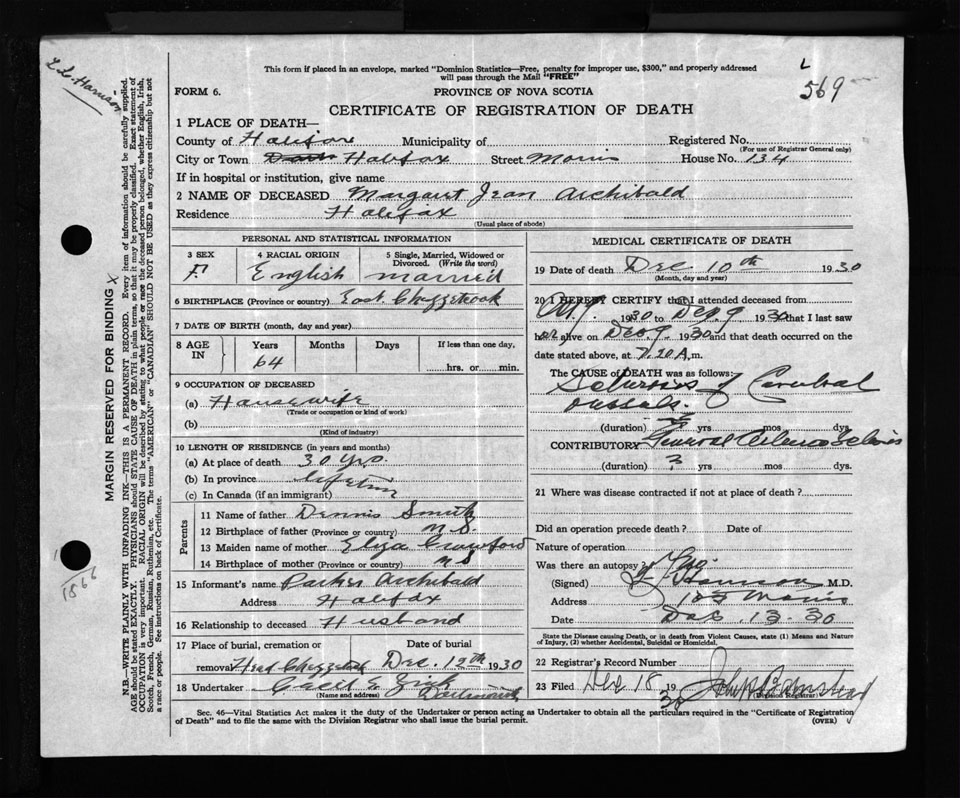 This form if placed in an envelope, marked "Dominion Statistics—Free, penalty for improper use, $300," and properly addressed
will pass through the Mail "FREE"
L
569
FORM 6.
PROVINCE OF NOVA SCOTIA
CERTIFICATE OF REGISTRATION OF DEATH
1 PLACE OF DEATH—
County of Halifax Municipality of Registered No.
(For use of Registrar General only)
City or Town Halifax Street Morris House No. 134
If in hospital or institution, give name
2 NAME OF DECEASED Margaret Jean Archibald
Residence Halifax
(Usual place of abode)
PERSONAL AND STATISTICAL INFORMATION
3 SEX
F.
4 RACIAL ORIGIN
English
5 Single, Married, Widowed or
Divorced. (Write the word)
married
6 BIRTHPLACE (Province or country) East Chezzetcook
7 DATE OF BIRTH (month, day and year)
8 AGE
IN
Years
64
Months
Days
If less than one day,
hrs. or min.
9 OCCUPATION OF DECEASED
(a) Housewife
(Trade or occupation or kind of work)
(b)
(Kind of industry)
10 LENGTH OF RESIDENCE (in years and months)
(a) At place of death 30 yrs.
(b) In province lifetime
(c) In Canada (if an immigrant)
Parents
11 Name of father Dennis Smith
12 Birthplace of father (Province or country) N.S.
13 Maiden name of mother Eliza Crawford
14 Birthplace of mother (Province or country) N S
15 Informant's name Parker Archibald
Address Halifax
16 Relationship to deceased Husband
17 Place of burial, cremation or Date of burial
removal Head Chezzetcook Dec. 12th 1930
18 Undertaker Cecil E. Zink
(Name and address) Dartmouth
MEDICAL CERTIFICATE OF DEATH
19 Date of death Dec. 10th 1930
(Month, day and year)
20 I HEREBY CERTIFY that I attended deceased from
1930 to Dec 9 1930 that I last saw
her alive on Dec 9 1930 and that death occurred on the
date stated above, at 7.20 A.m.
The CAUSE of DEATH was as follows:
Sclerosis of Cerebral
vessels.
(duration) yrs mos dys.
CONTRIBUTORY General Arterio Sclerosis
(duration) ? yrs mos dys.
21 Where was disease contracted if not at place of death?
Did an operation precede death? Date of
Nature of operation
Was there an autopsy? No
(Signed) Harrison M.D.
Address Morris
Date Dec. 13. 30
State the Disease causing Death, or in death from Violent Causes, state (1) Means and Nature
of Injury, (2) whether Accidental, Suicidal or Homicidal.
22 Registrar's Record Number
23 Filed Dec 18 1930
Sec. 46—Vital Statistics Act makes it the duty of the Undertaker or person acting as Undertaker to obtain all the particulars required in the "Certificate of Registration
of Death" and to file the same with the Division Registrar who shall issue the burial permit. (OVER)
MARGIN RESERVED FOR BINDING X
N.B.—WRITE PLAINLY WITH UNFADING INK—THIS IS A PERMANENT RECORD. Every item of information should be carefully supplied.
AGE should be stated EXACTLY. PHYSICIANS should STATE CAUSE OF DEATH in plain terms, so that it may be properly classified. Exact statement of
OCCUPATION is very important. RACIAL ORIGIN will be described by stating to what people or race the deceased person belonged, whether English, Irish,
Scotch, French, German, Russian, Ruthenian, etc. The terms "AMERICAN" or "CANADIAN" SHOULD NOT BE USED as they express citizenship but not
a race or people. See instructions on back of Certificate.
1866